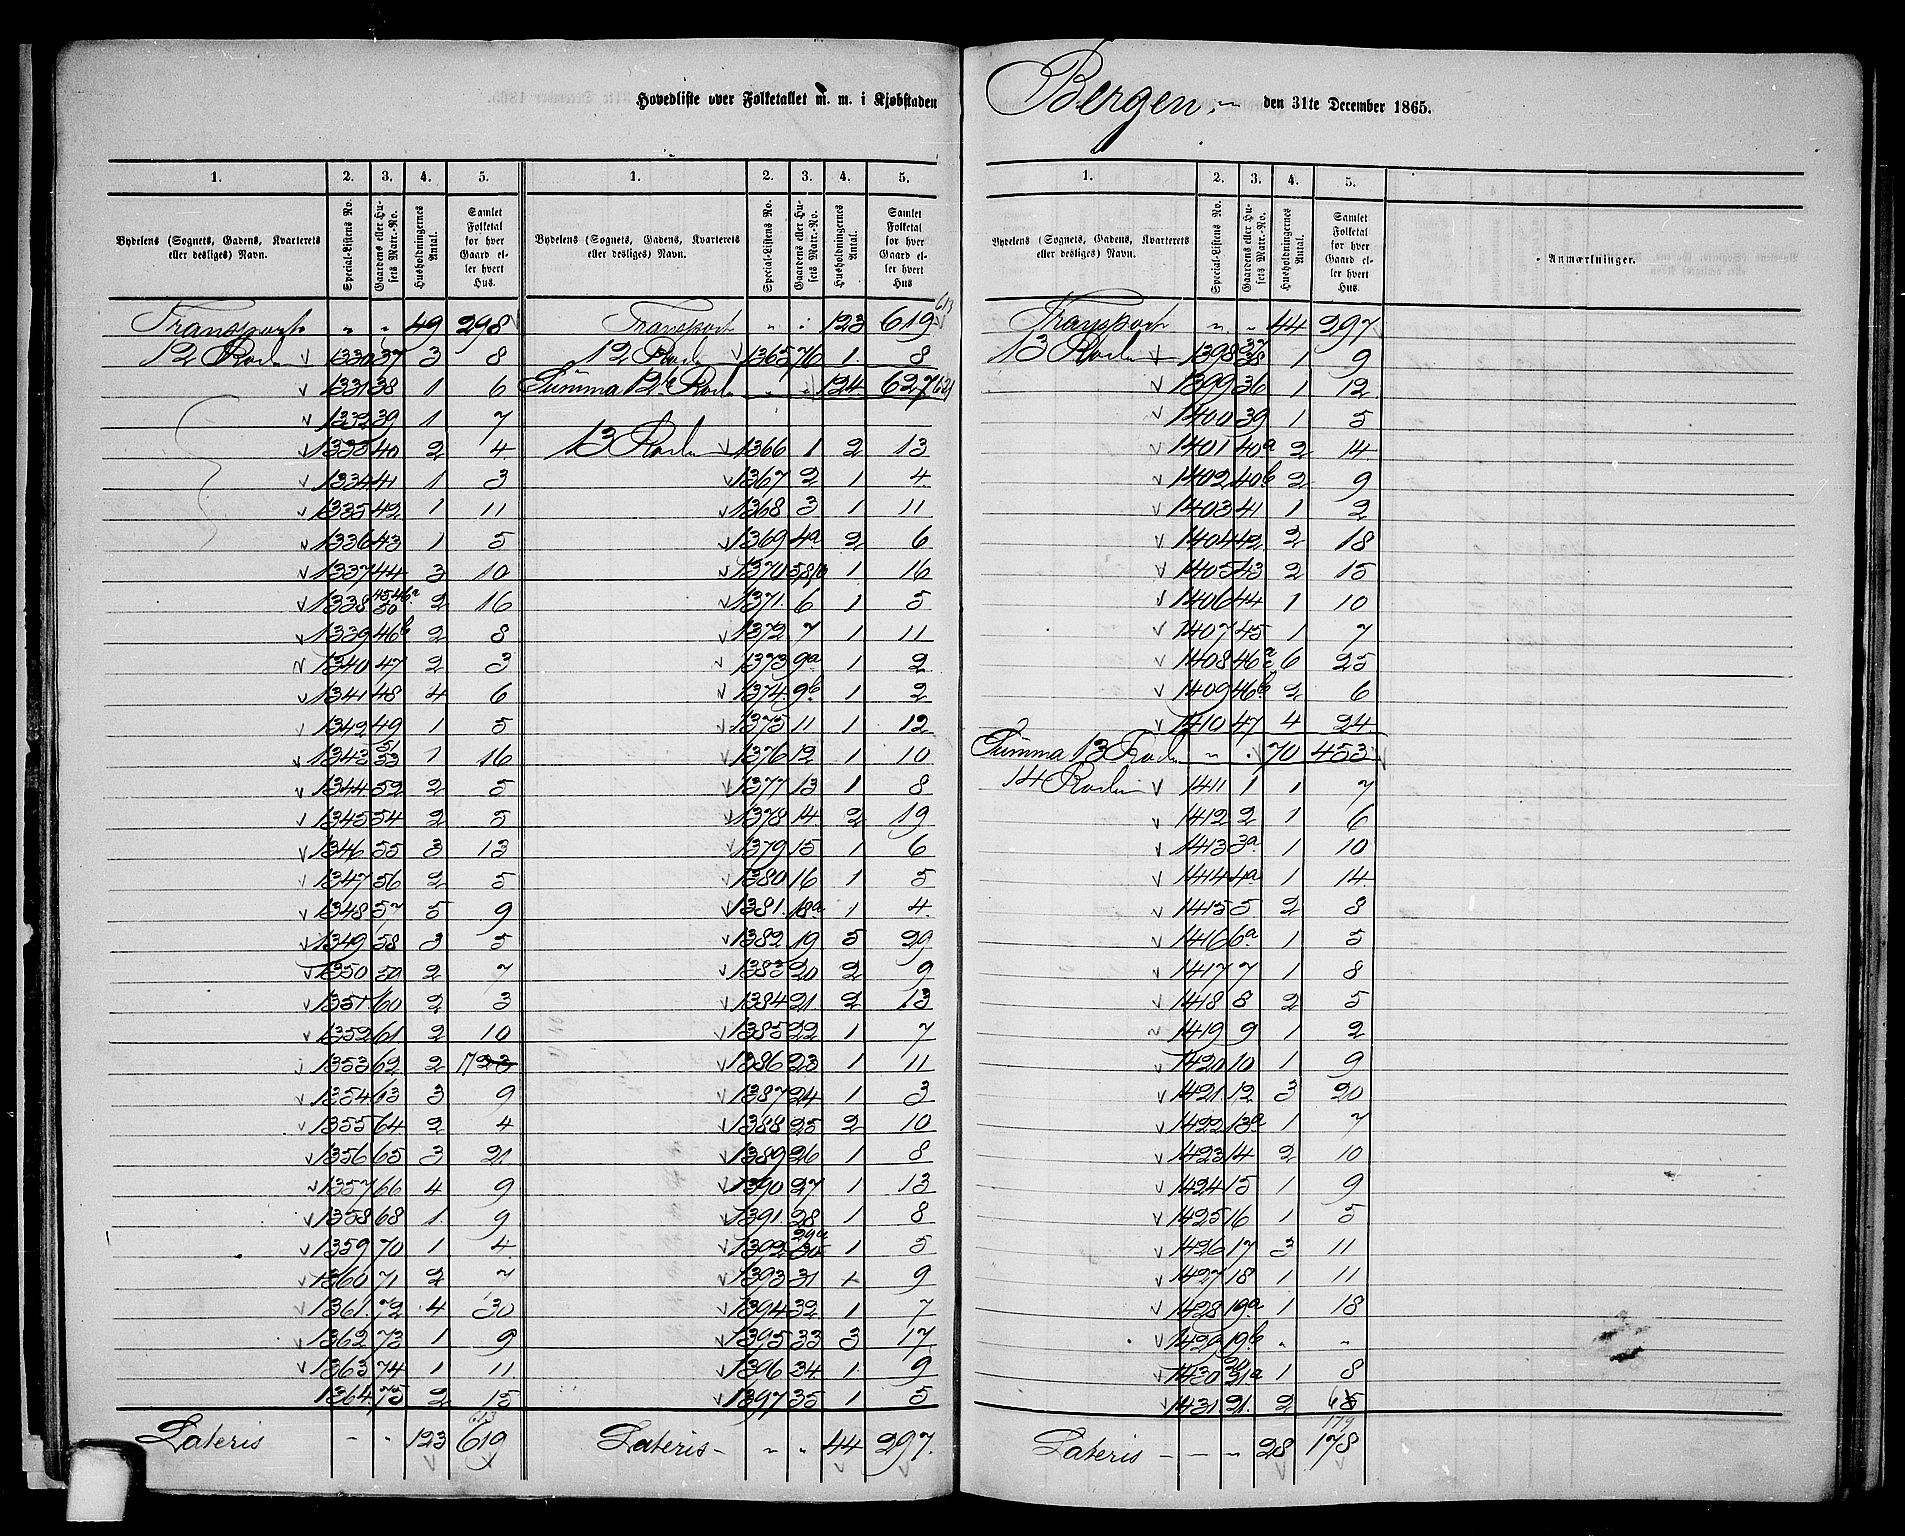 Hovedliste over Folketallet m. m. i Kjøbstaden Bergen. den 31te December 1865.
1. 2. 3. 4. 5.
Bydelens (Sognets, Gadens, Kvarterets eller desliges) Navn. Special-Listens No. Gaardens eller Husets Matr.-No. Husholdningernes Antal. Samlet Folketal for hver Gaard eller hvert Hus.
Transport " " 49 298
12 Rode 1330 37 3 8
1331 38 1 6
1332 39 1 7
1333 40 2 4
1334 41 1 3
1335 42 1 11
1336 43 1 5
1337 44 3 10
1338 45 46a 50 2 16
1339 46b 2 8
1340 47 2 3
1341 48 4 6
1342 49 1 5
1343 51 53 1 16
1344 52 2 5
1345 54 2 5
1346 55 3 13
1347 56 2 5
1348 57 5 9
1349 58 3 5
1350 59 2 7
1351 60 2 3
1352 61 2 10
1353 62 2 17 23
1354 63 3 9
1355 64 2 4
1356 65 3 21
1357 66 4 9
1358 68 1 9
1359 70 1 4
1360 71 2 7
1361 72 4 30
1362 73 1 9
1363 74 1 11
1364 75 2 15
613
Lateris - " 123 619
1. 2. 3. 4. 5.
Bydelens (Sognets, Gadens, Kvarterets eller desliges) Navn. Special-Listens No. Gaardens eller Husets Matr.-No. Husholdningernes Antal. Samlet Folketal for hver Gaard eller hvert Hus
Transport " " 123 619 613
12 Rode 1365 76 1 8
Summa 12te Rode " " 124 627 621
13 Rode 1366 1 2 13
1367 2 1 4
1368 3 1 11
1369 4a 2 6
1370 5,8,10 1 16
1371 6 1 5
1372 7 1 11
1373 9a 1 2
1374 9b 1 2
1375 11 1 12
1376 12 1 10
1377 13 1 8
1378 14 2 19
1379 15 1 6
1380 16 1 5
1381 18a 1 4
1382 19 5 29
1383 20 2 9
1384 21 2 13
1385 22 1 7
1386 23 1 11
1387 24 1 3
1388 25 2 10
1389 26 1 8
1390 27 1 13
1391 28 1 8
1392 29a 30 1 5
1393 31 1 9
1394 32 1 7
1395 33 3 17
1396 34 1 9
1397 35 1 5
Lateris - " " 44 297.
1. 2. 3. 4. 5.
Bydelens (Sognets, Gadens, Kvarterets eller desliges) Navn. Special-Listens No. Gaardens eller Husets Matr.-No. Husholdningernes Antal. Samlet Folketal for hver Gaard eller hvert Hus. Anmærkninger.
Transport " " 44 297
13 Rode 1398 37 38 1 9
1399 36 1 12
1400 39 1 5
1401 40a 2 14
1402 40b 2 9
1403 41 1 2
1404 42 2 18
1405 43 2 15
1406 44 1 10
1407 45 1 7
1408 46a c 6 25
1409 46b 2 6
1410 47 4 24
Summa 13 Rode " " 70 453
14 Rode 1411 1 1 7
1412 2 1 6
1413 3a 1 10
1414 4a 1 14
1415 5 2 8
1416 6a 1 5
1417 7 1 8
1418 8 2 5
1419 9 1 2
1420 10 1 9
1421 12 3 20
1422 13a 1 7
1423 14 2 10
1424 15 1 9
1425 16 1 5
1426 17 3 11
1427 18 1 11
1428 19a 1 18
1429 19b " "
1430 20 21a 1 8
1431 21 2 6 5
179
Lateris - - " 28 178